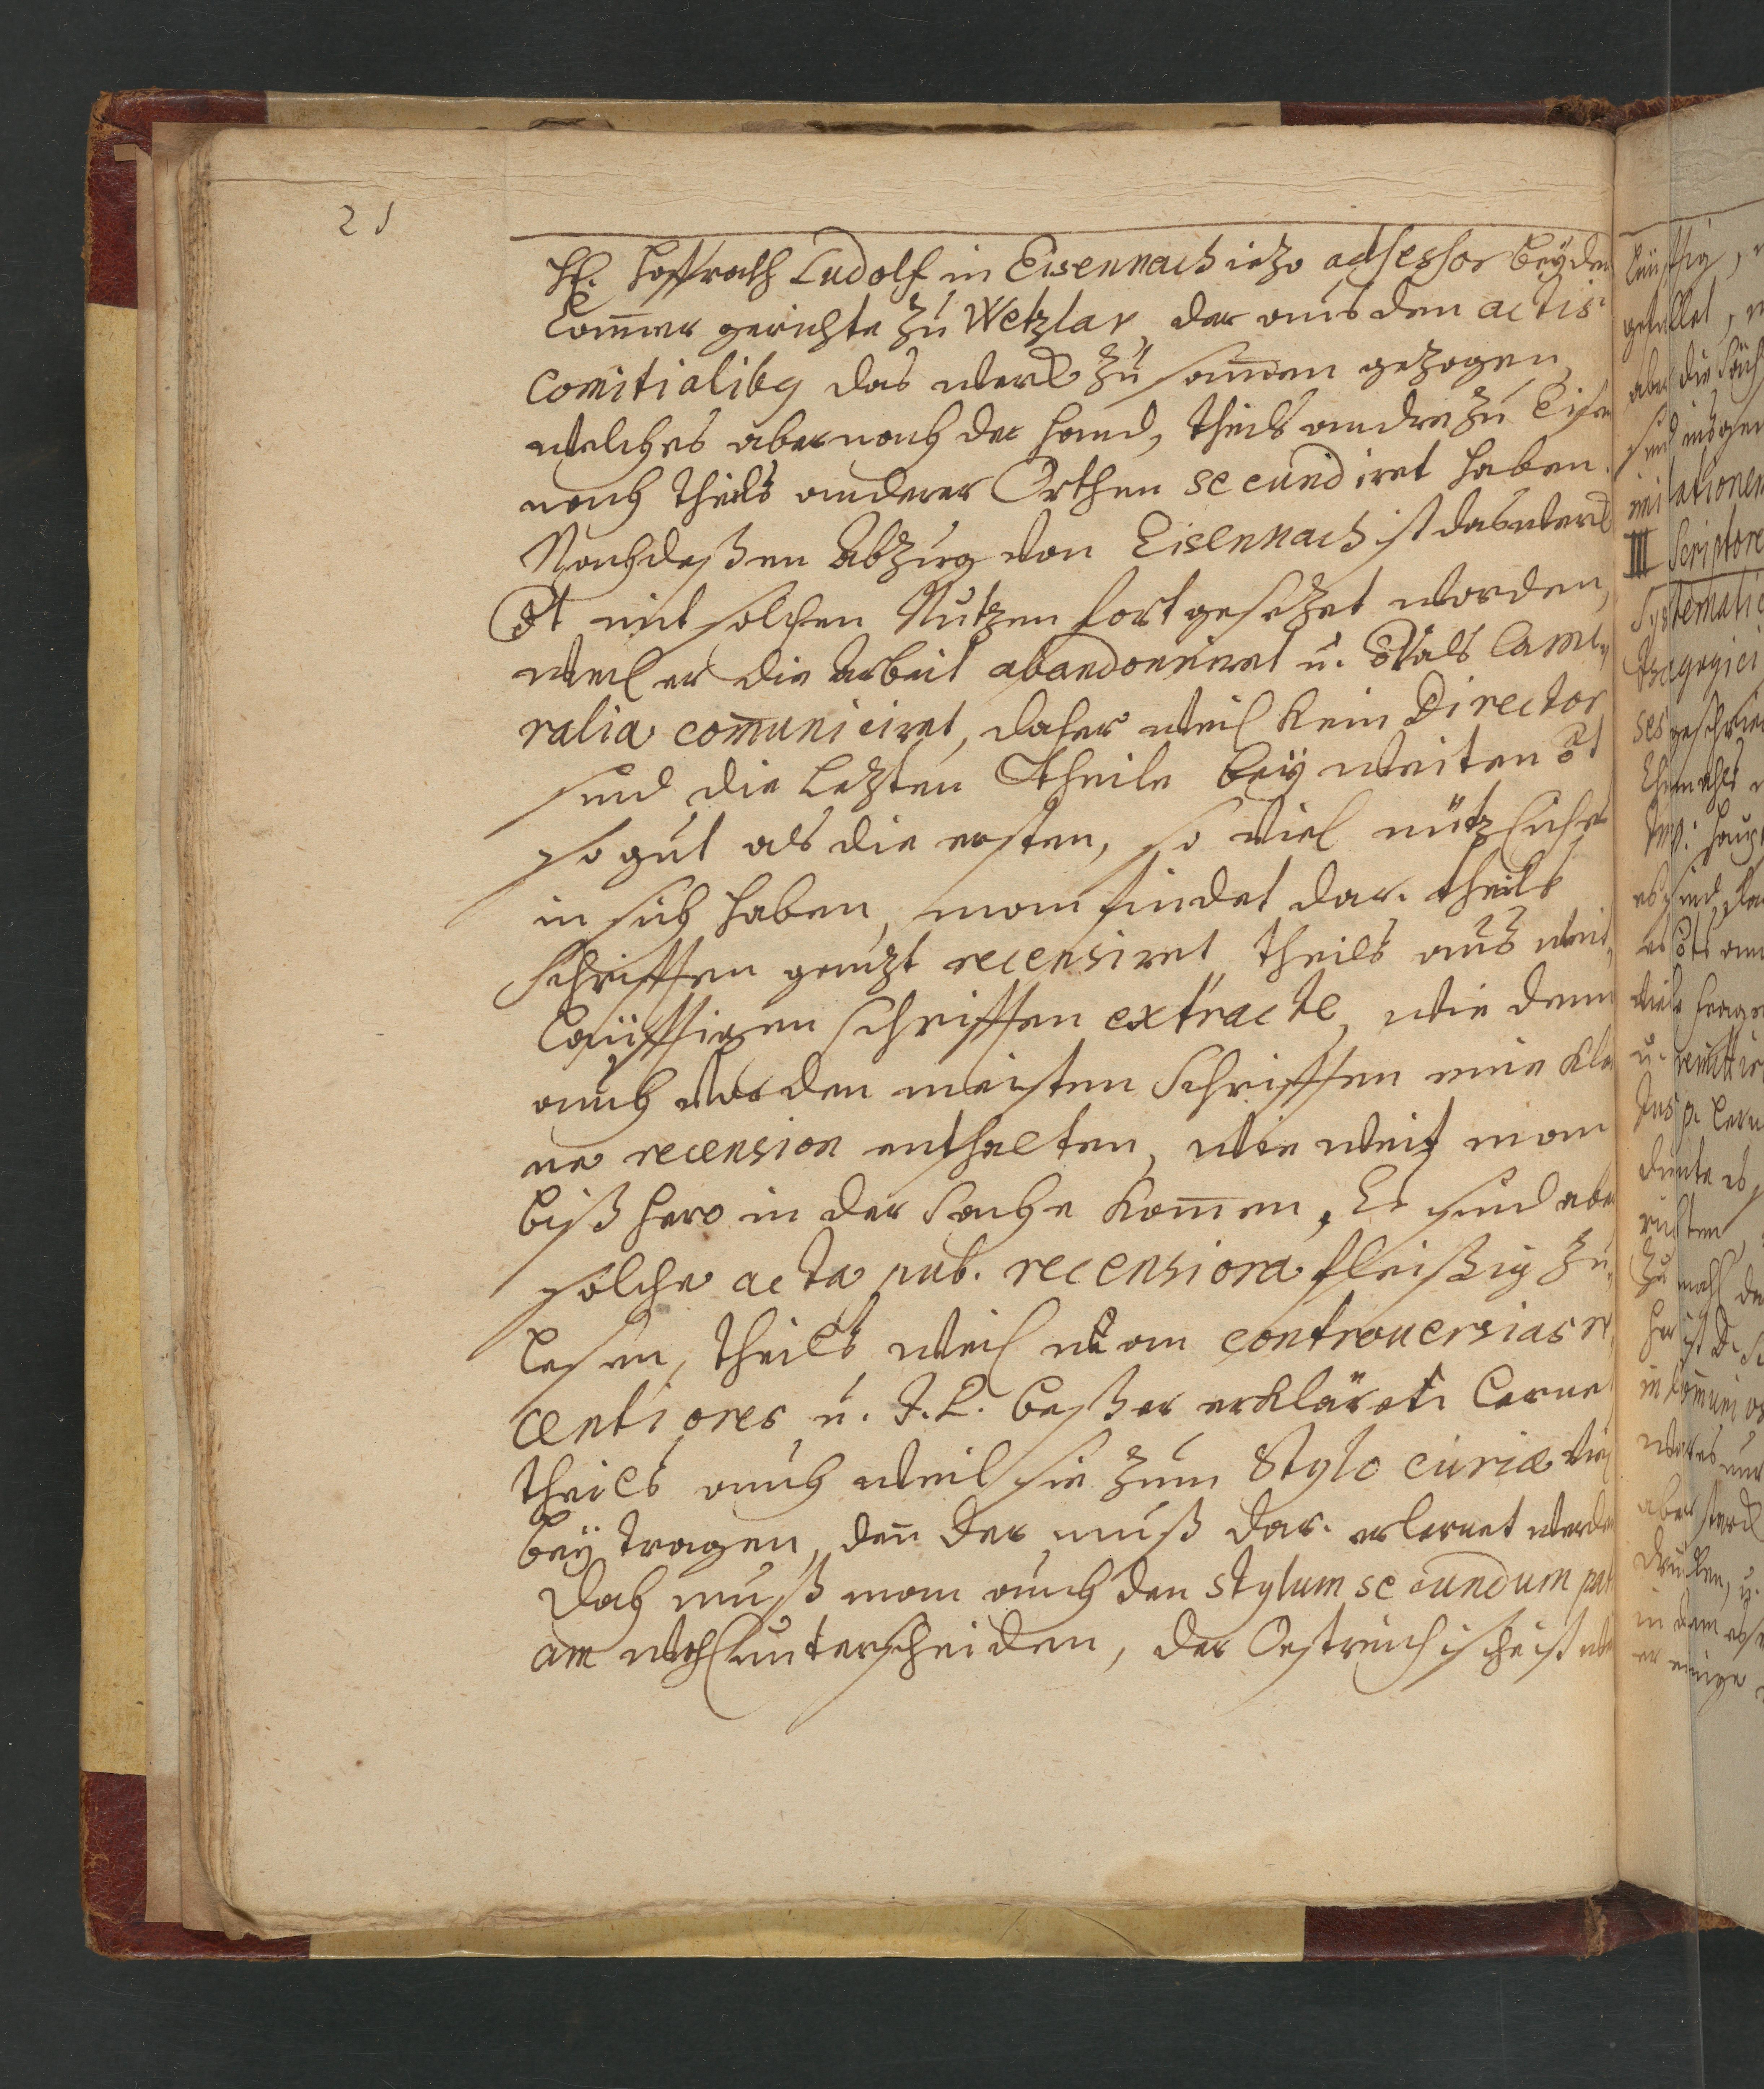 21
H. Hoffrath Ludolf in Eisennach iezo adsessor bey den
Cammer gerichte zu Wetzlar, der aus den actis
comitialibg das werck zu sammen gezogen,
welches aber nach der Hand, theils andre zu Eise
nach theils anderer Orthen secundiret haben.
Nach deßen Abzug von Eisennach ist das werck
öt mit solchen Nutzen fortgesezet worden,
weil er die Arbeit abandonniret u. öt als Came
ralia com̄uniciret, daher weil kein Director
sind die Lezten Theile bey weiten öt
so gut als die ersten, so viel nützliches
in sich haben, man findet dar. theils
Schrifften ganzt recensiret theils aus weit,
läufftigen schrifften extracte, wie denn
auch vor den meisten Schrifften eine kla
ne recension enthalten, wie weit man
biß hero in der Sache kom̄en, Es sind aber
solche acta pub. recensiora fleißig zu
lesen, theils weil man controuersias re,
centiores u. J. P. beßer erkläret. lernet
theils auch weil sie zum Stylo curiæ viel
bey tragen, den̄ der muß dar. erlernet werden
Doch muß man auch den stylum secundum pat
am wohl unterscheiden, der Oestreichische ist
läufftig,
aber die
sind insgem
III Scriptore
Systematic
Ehmahls
es sind